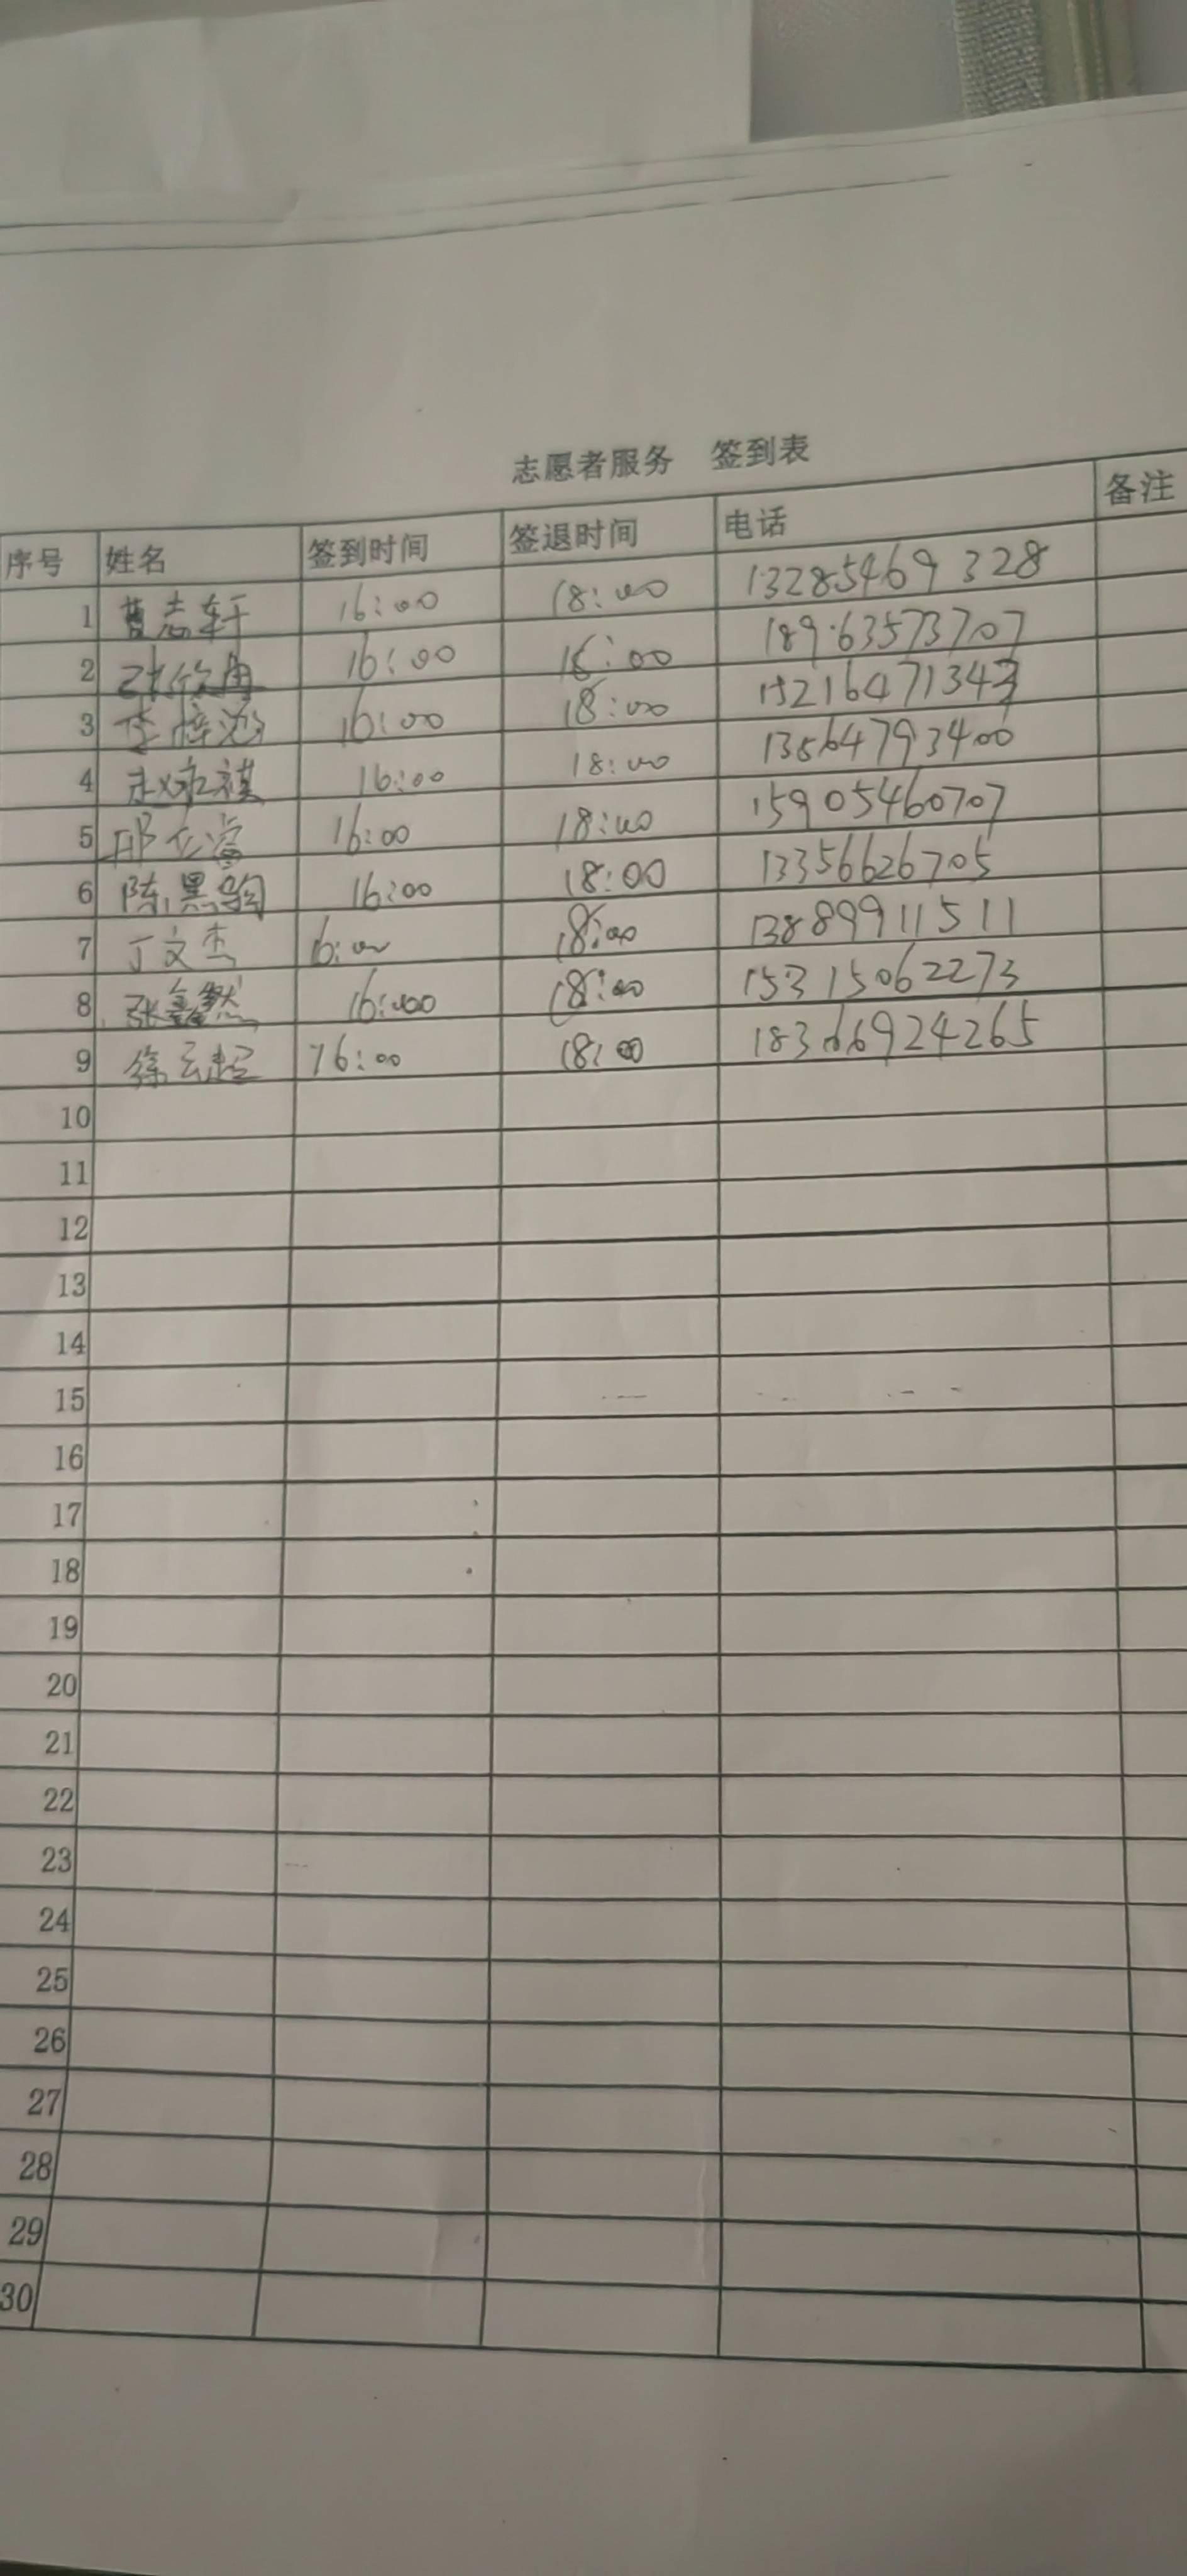 志愿者服务 签到表
序号 姓名 签到时间 签退时间 电话 备注
1 曹志轩 16:00 18:00 13285469328
2 16:00 16:00 18963573707
3 李梓涵 16:00 18:00 15216471343
4 赵永祺 16:00 18:00 13564793400
5 16:00 18:00 15905460707
6 16:00 18:00 13356626705
7 丁文杰 16:00 18:00 13889911511
8 张鑫然 16:00 18:00 15315062273
9 徐云超 16:00 18:00 18366924265
10
11
12
13
14
15
16
17
18
19
20
21
22
23
24
25
26
27
28
29
30